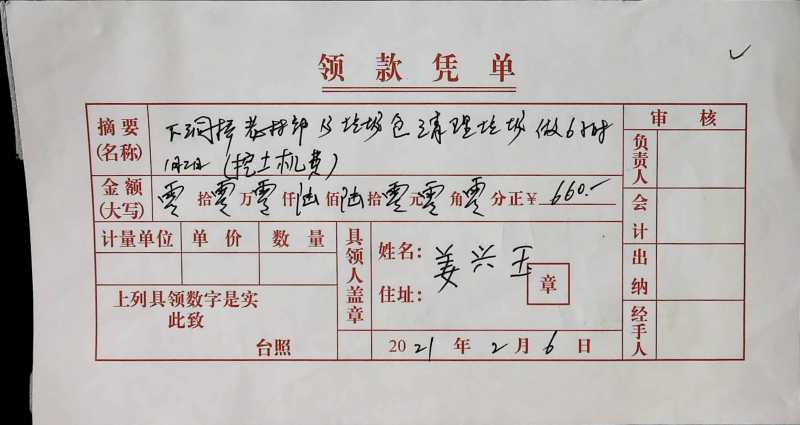 领款凭单
摘要 审核
(名称)
下 垃圾 清理垃圾 做6小时
1月2日 (挖土机费)
负责人
金额
(大写)
零拾零万零仟陆佰陆拾零元零角零分正¥ 660.-
会计
计量单位 单价 数量
具领人盖章
姓名: 姜兴玉
住址:
章
出纳
上列具领数字是实
此致
台照
2021年2月6日
经手人